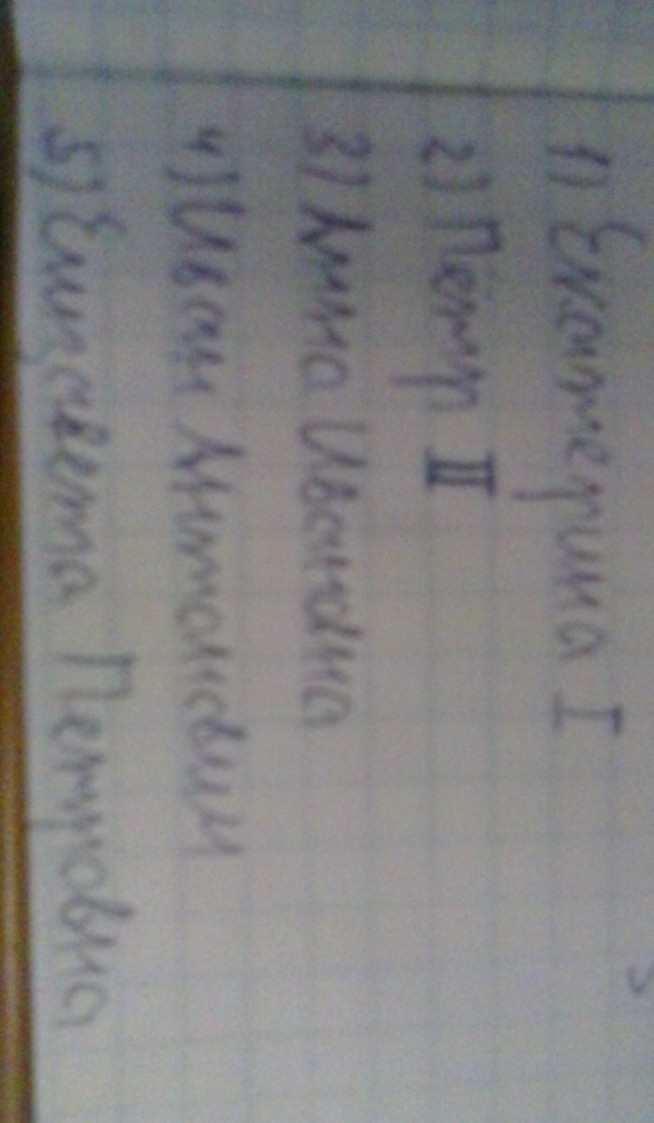 1) Екатерина I
2) Пётр II
3) Анна Ивановна
4) Иван Антонович
5) Елизавета Петровна